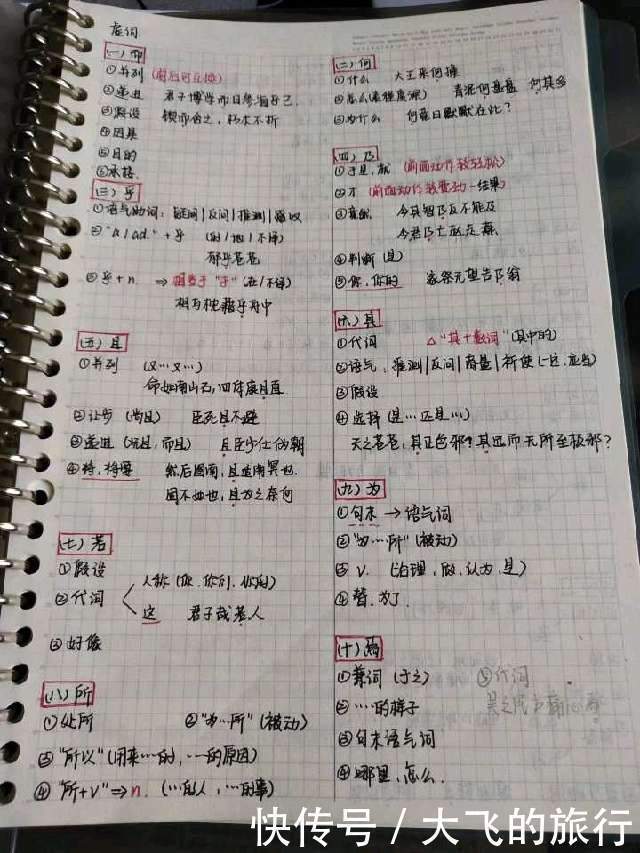 虚词
(一) 而
①并列 (前后可互换)
②递进 君子博学而日参省乎己
③假设 锲而舍之，朽木不折
④因果
⑤目的
⑥承接
(二) 何
①什么 大王来何操
②怎么(表程度深) 青泥何盘盘 何其多
③为什么 何竟日默默在此？
(三) 乎
①语气助词：疑问|反问|推测|感叹
②"a/ad." + 乎 (的/地/不译)
郁乎苍苍
③乎+n. ⇒ 相当于"于" (在/不译)
相与枕藉乎舟中
(四) 乃
①于是，就 (前面动作较轻松)
②才 (前面动作较费劲→结果)
③竟然 今其智乃反不能及
今君乃亡赵走燕
④判断 (是)
⑤你，你的 家祭无忘告乃翁
(五) 且
①并列 (又…又…)
命如南山石，四体康且直
②让步 (尚且) 臣死且不避
③递进 (况且，而且) 且臣少仕伪朝
④将，将要 然后图南，且适南冥也
因不如也，且为之奈何
(六) 其
①代词 △"其+数词" (其中的)
②语气，推测|反问|商量|祈使 (一定，应当)
③假设
④选择 (是…还是…)
天之苍苍，其正色邪？其远而无所至极邪？
(七) 若
①假设
②代词
人称 (你，你们，你的)
这 君子哉若人
③好像
(八) 所
①处所 ②"为…所" (被动)
③"所以" (用来…的，…的原因)
④"所+v" ⇒ n. (…的人，…的事)
(九) 为
①句末 → 语气词
②"为…所" (被动)
③v. (治理，做，认为，是)
④替，为了
(十) 焉
①兼词 (于之) ⑤代词
②…的样子
③句末语气词
④哪里，怎么
快传号 / 大飞的旅行